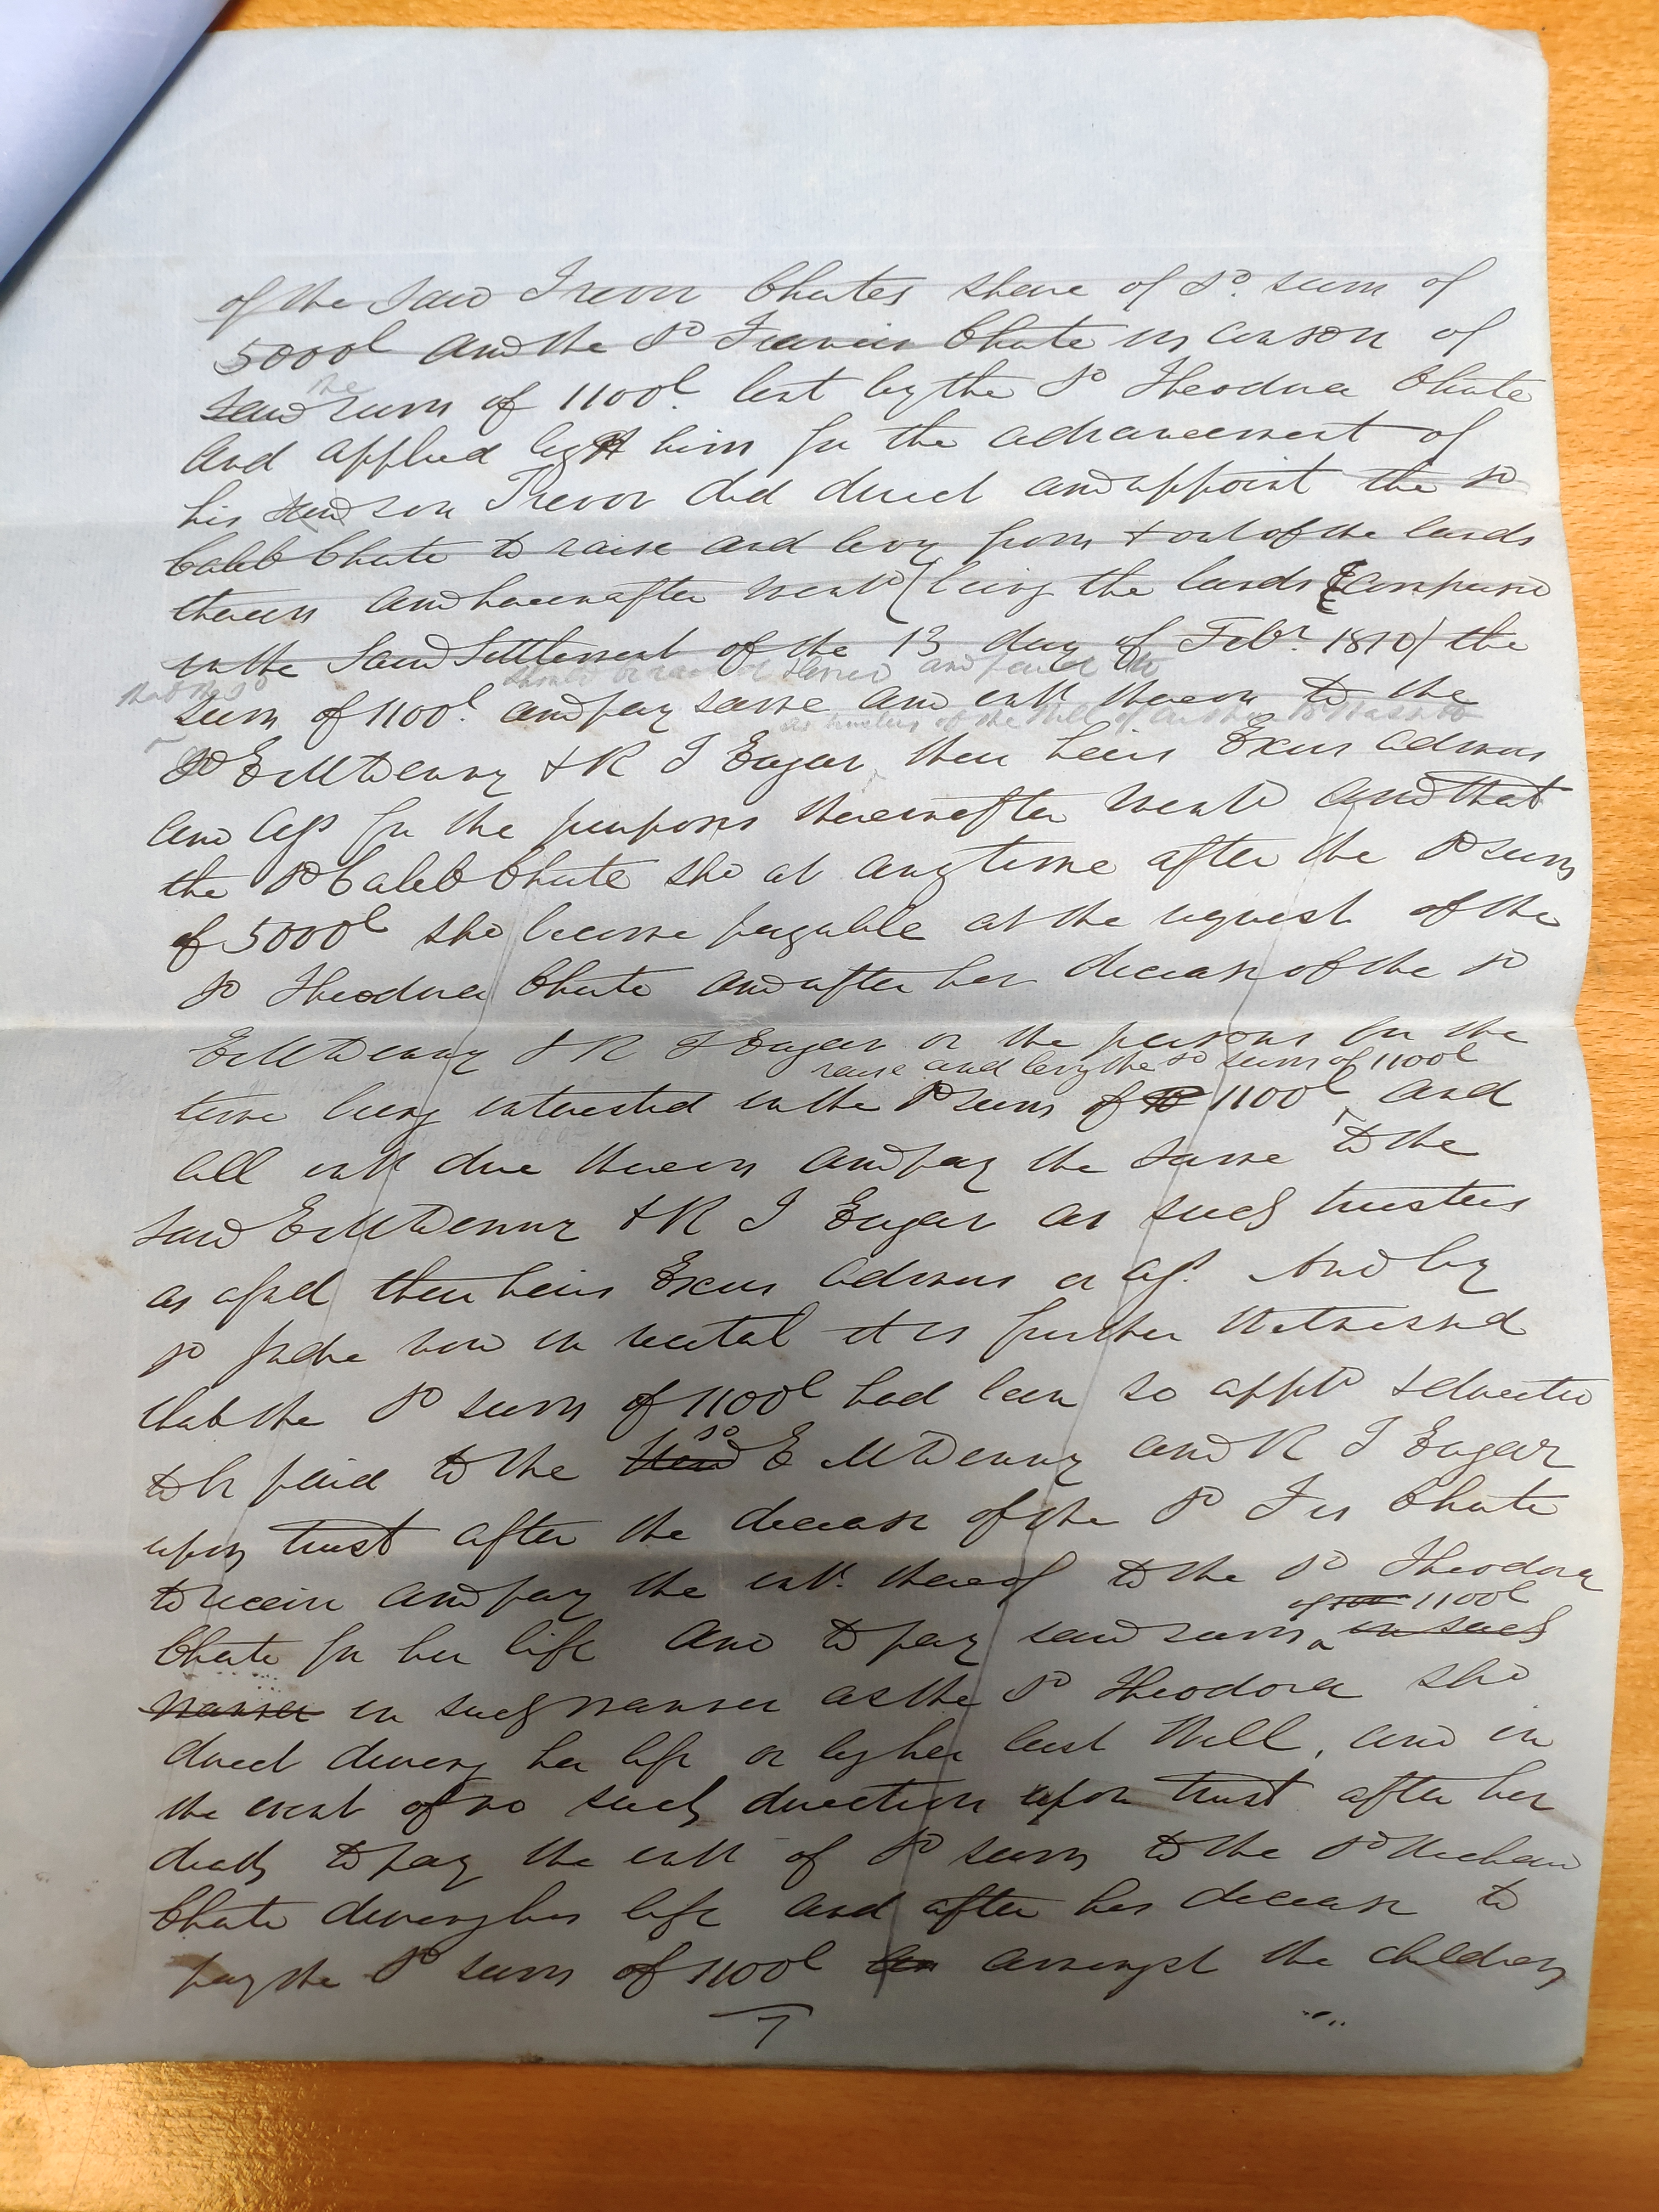 of the said Trevor Chutes share of sd. sum of
5000l and the sd Francis Chute in conson of
said the sum of 1100l. lent by the sd Theodora Chute
and applied by him for the advancement of
his said son Trevor did direct and appoint the sd
Caleb Chute to raise and levy from & out of the lands
therein and hereinafter mentd (being the lands comprised
in the said Settlement of the 13 day of Febr. 1810) the
that the sd should be and paid
sum of 1100l. and pay same and intt thereon to the
as trustees of the Will of Arthur
sd E M Denny & R I Eagar their heirs Exors admors
and ass for the purposes thereinafter mentd and that
the sd Caleb Chute shd at any time after the sd sum
of 5000l shd become payable at the request of the
sd Theodora Chute and after her decease of the sd
E M Denny & R I Eagar or the persons for the
raise and levy the sd sum of 1100l
time being interested in the sd sum of 1100l and
all intt due thereon and pay the same to the
said E M Denny & R I Eagar as such trustees
as afsd their heirs Exors admors or ass. And by
sd Indre now in recital it is further Witnessed
that the sd sum of 1100l had been so apptd & directed
to be paid to the sd E M Denny and R I Eagar
upon trust after the decease of the sd Frs Chute
to receive and pay the intt. thereof to the sd Theodora
of 1100l
Chute for her life and to pay said sum in such
manner in such manner as the sd Theodora shd
direct during her life or by her last Will, and in
the event of no such direction upon trust after her
death to pay the intt of sd sum to the sd Richard
Chute during his life and after his decease to
pay the sd sum of 1100l amongst the children
7